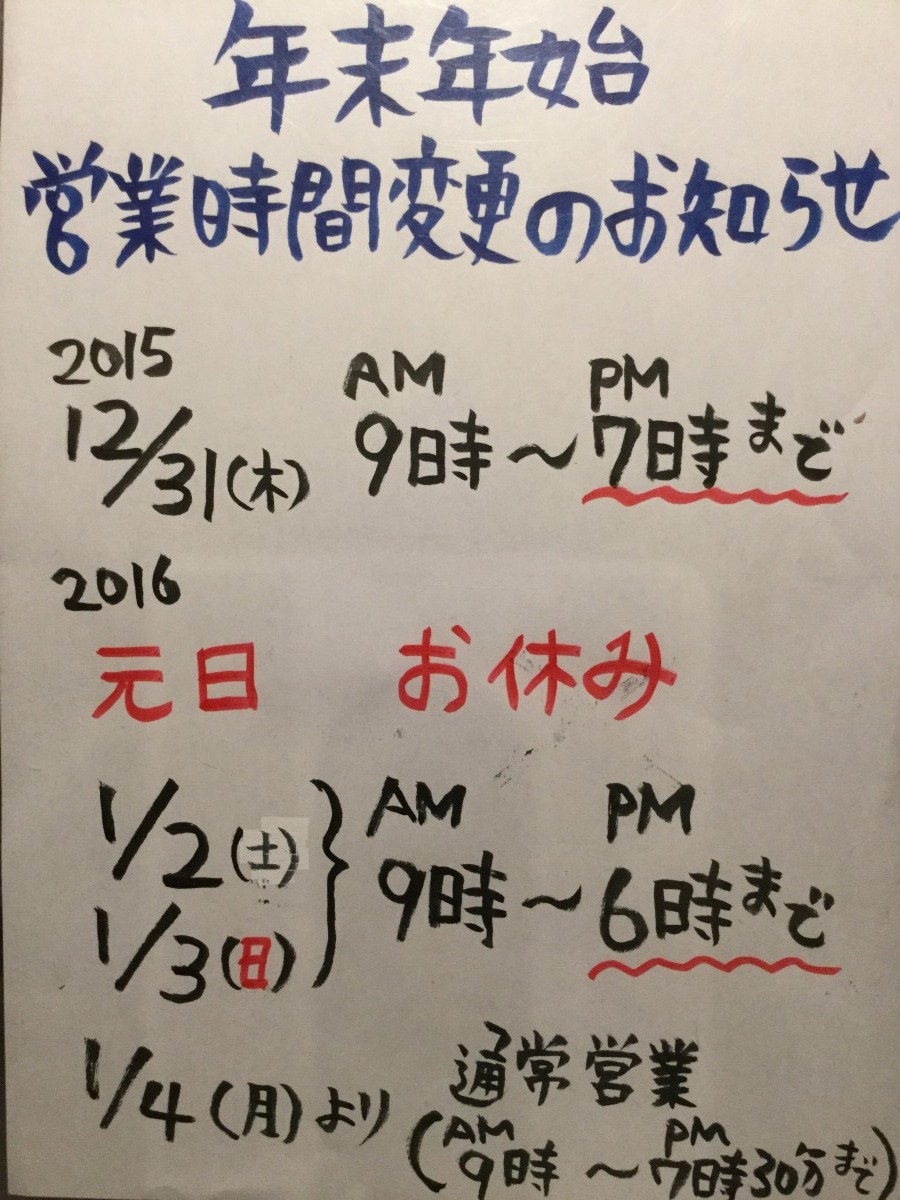 年末年始
営業時間変更のお知らせ
2015
AM PM
12/31(木) 9時〜7時まで
2016
元日 お休み
AM PM
1/2(土)
9時〜6時まで
1/3(日)
1/4(月)より 通常営業
AM PM
(9時〜7時30分まで)